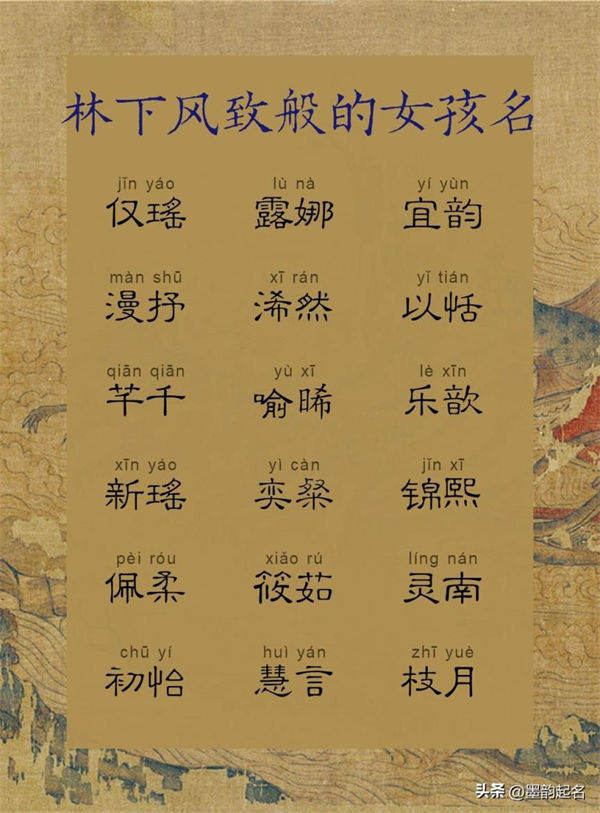 林下风致般的女孩名
jǐn yáo lù nà yí yùn
仅瑶 露娜 宜韵
màn shū xī rán yǐ tián
漫抒 浠然 以恬
qiān qiān yù xī lè xīn
芊千 喻晞 乐歆
xīn yáo yì càn jǐn xī
新瑶 奕粲 锦熙
pèi róu xiǎo rú líng nán
佩柔 筱茹 灵南
chū yí huì yán zhī yuè
初怡 慧言 枝月
头条 @墨韵起名